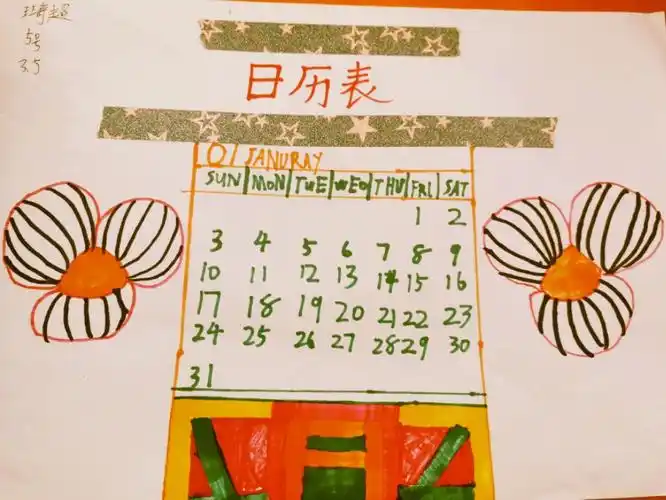 5号
3.5
日历表
01 JANURAY
SUN MON TUE WED THU FRI SAT
1 2
3 4 5 6 7 8 9
10 11 12 13 14 15 16
17 18 19 20 21 22 23
24 25 26 27 28 29 30
31